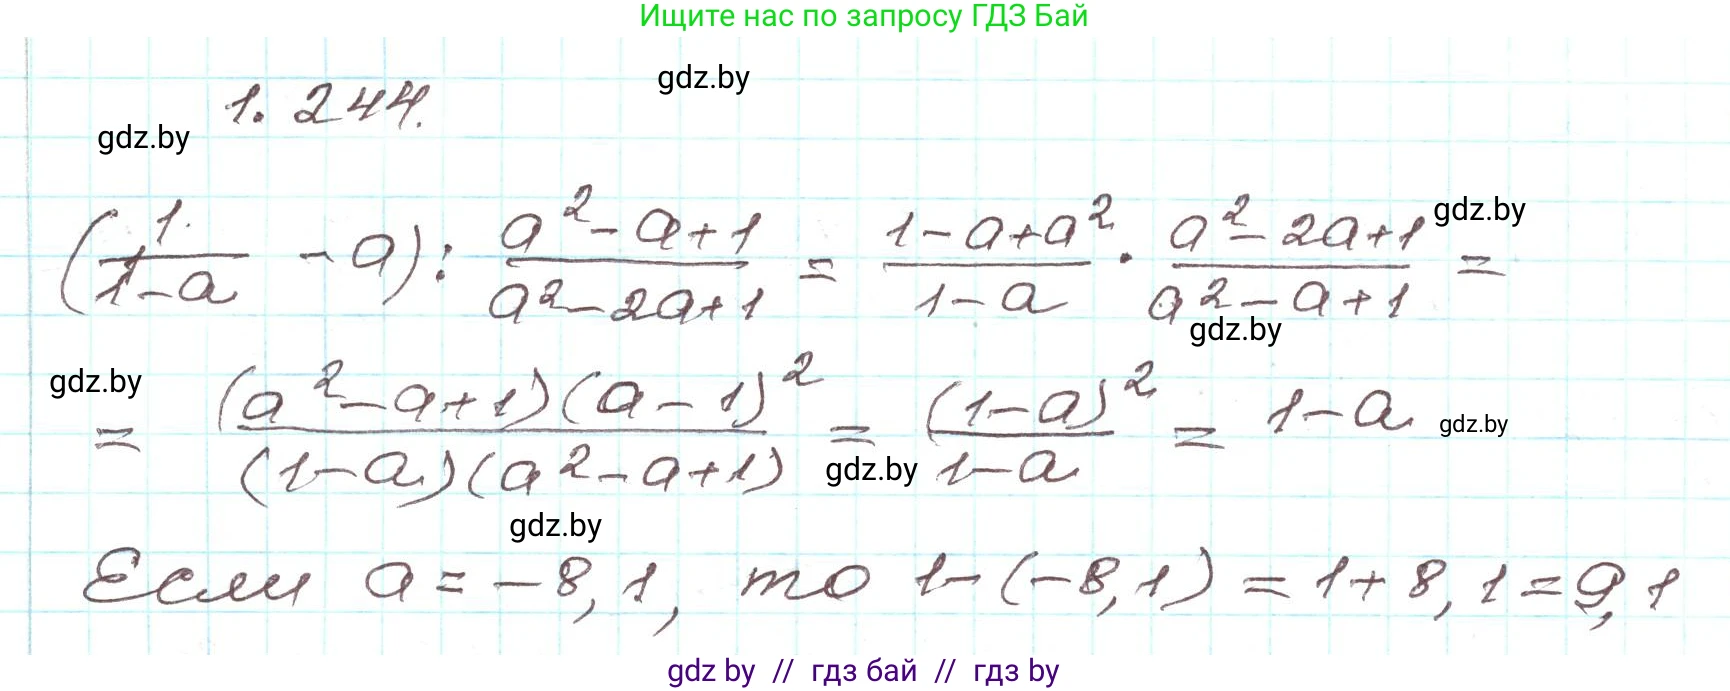 Ищите нас по запросу ГДЗ Бай
gdz.by
1.244.
gdz.by
(1/(1-a) - a) : (a²-a+1)/(a²-2a+1) = (1-a+a²)/(1-a) · (a²-2a+1)/(a²-a+1) =
gdz.by
gdz.by
gdz.by
= ((a²-a+1)(a-1)²)/((1-a)(a²-a+1)) = (1-a)²/(1-a) = 1-a
gdz.by
gdz.by
gdz.by
Если a = -8,1, то 1-(-8,1) = 1+8,1 = 9,1
gdz by // гдз бай // гдз by